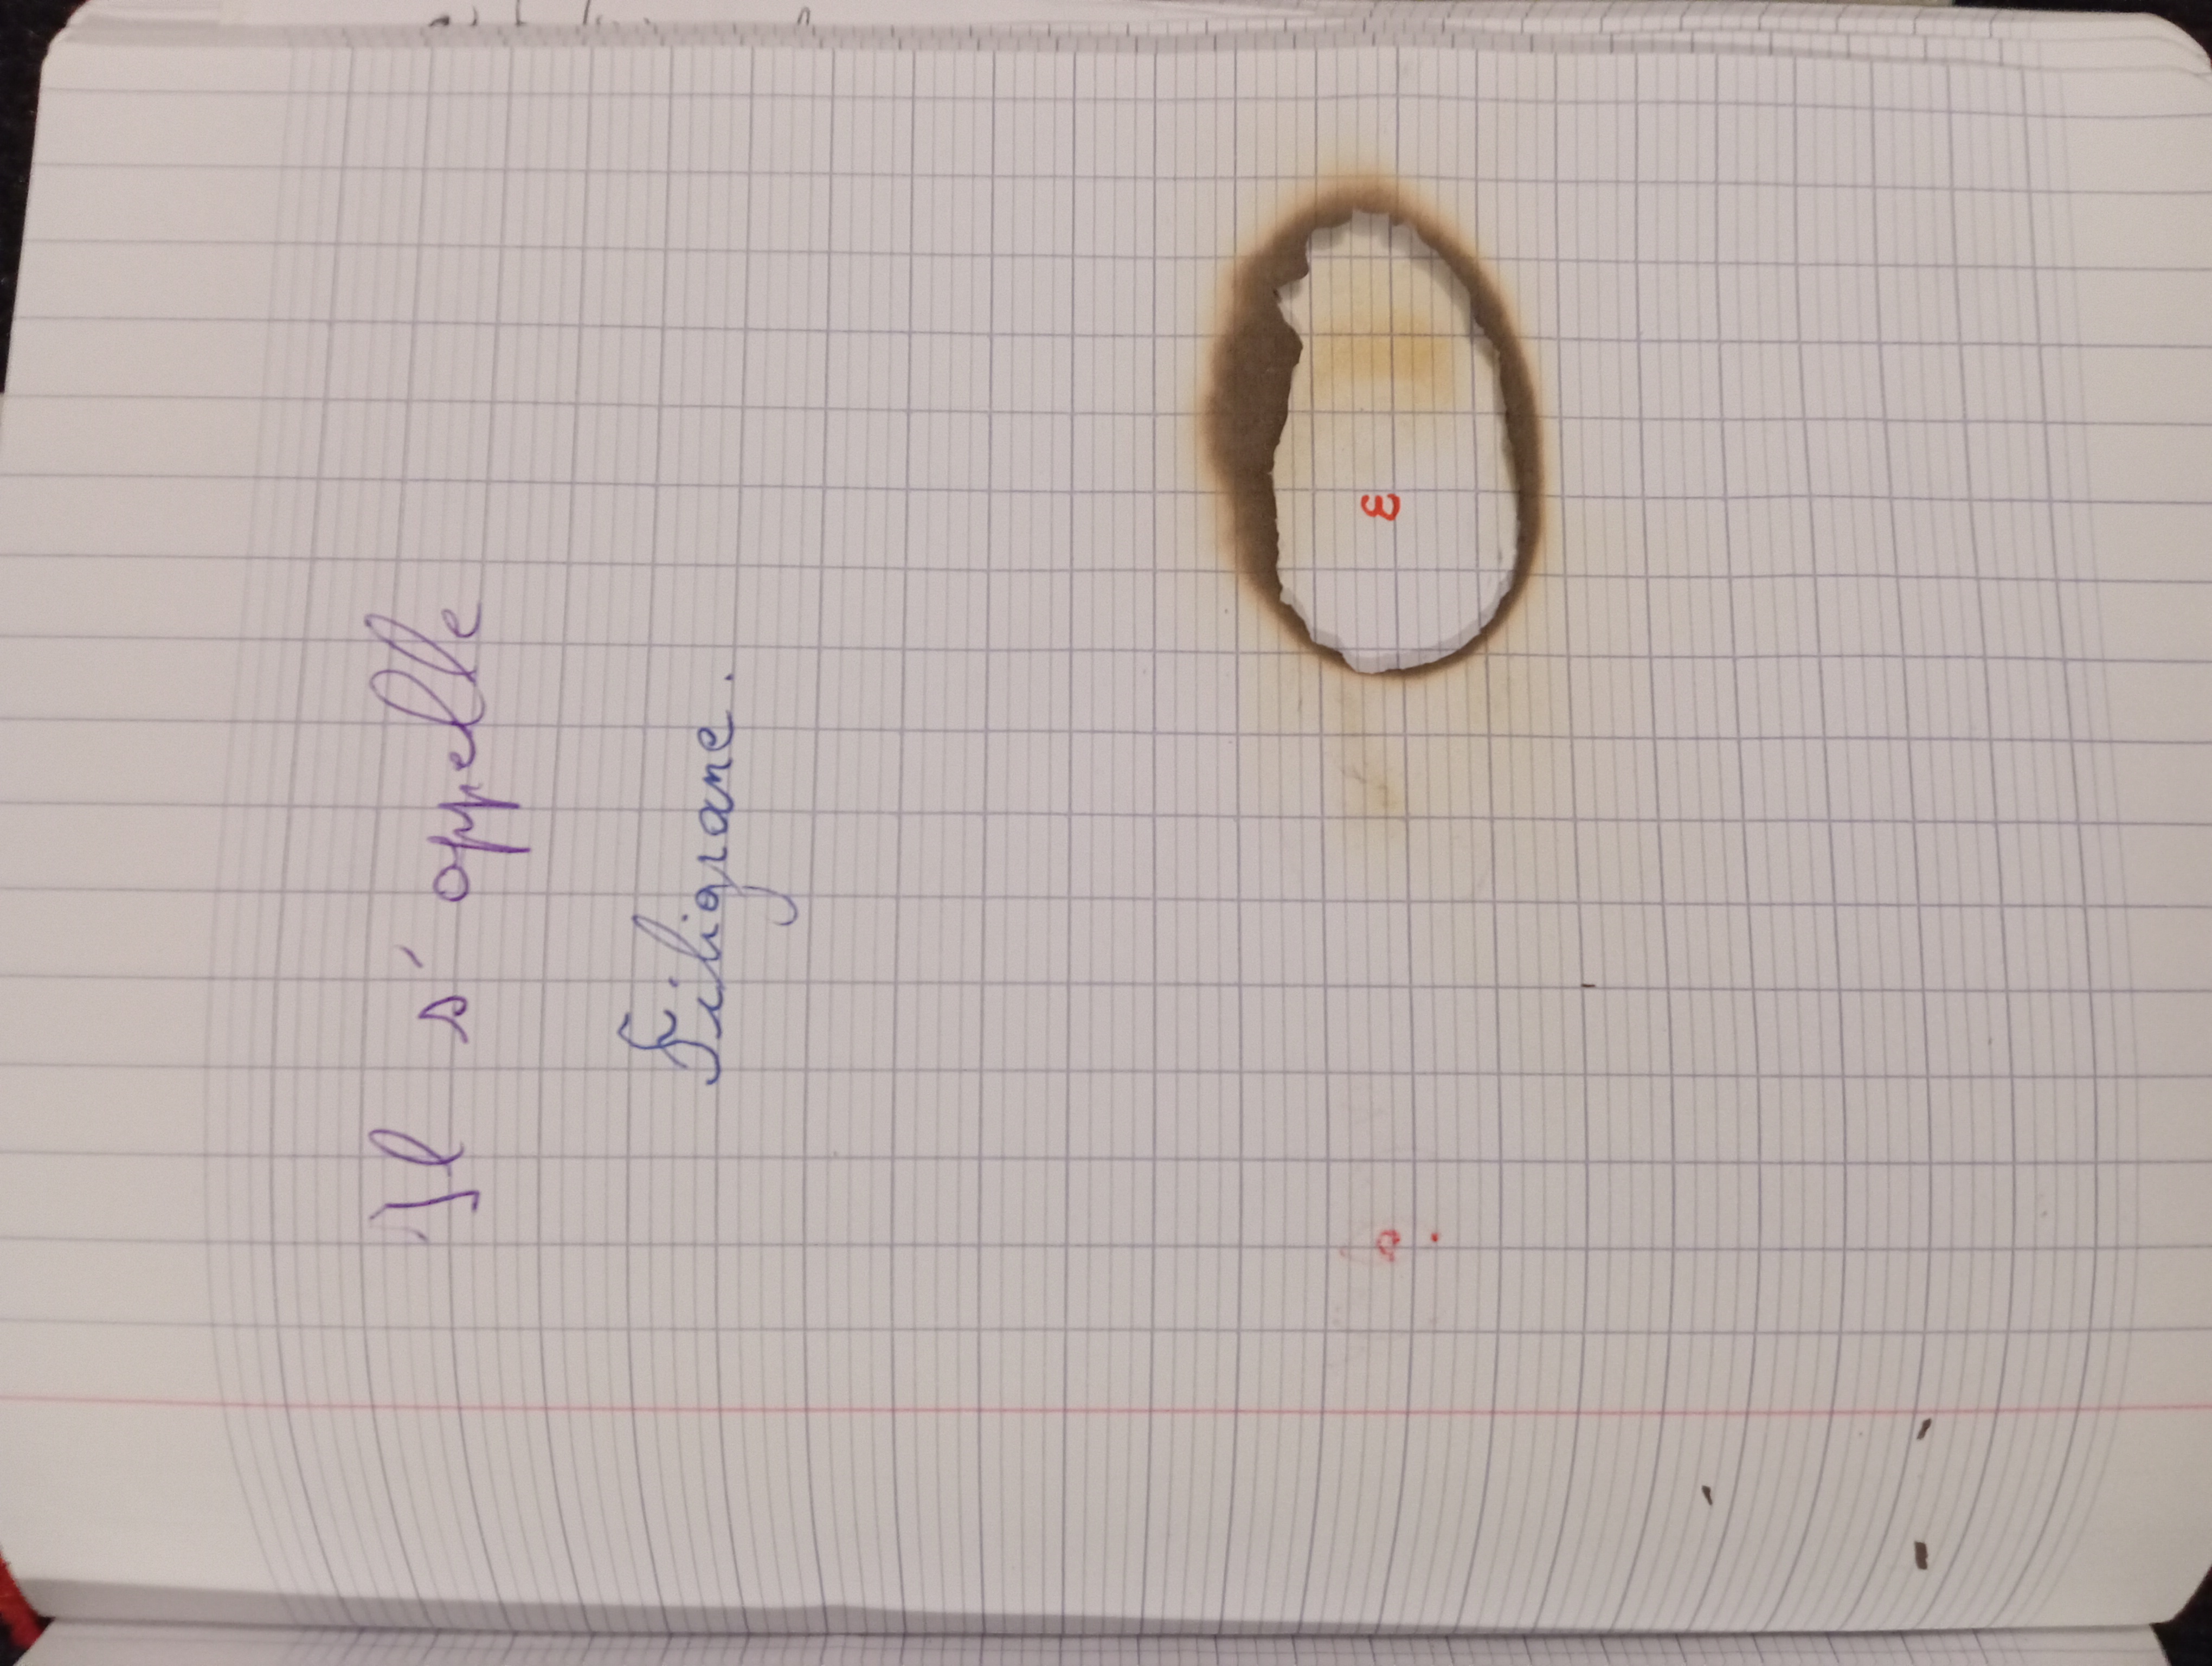 Il s'appelle
Filigrane.
ε